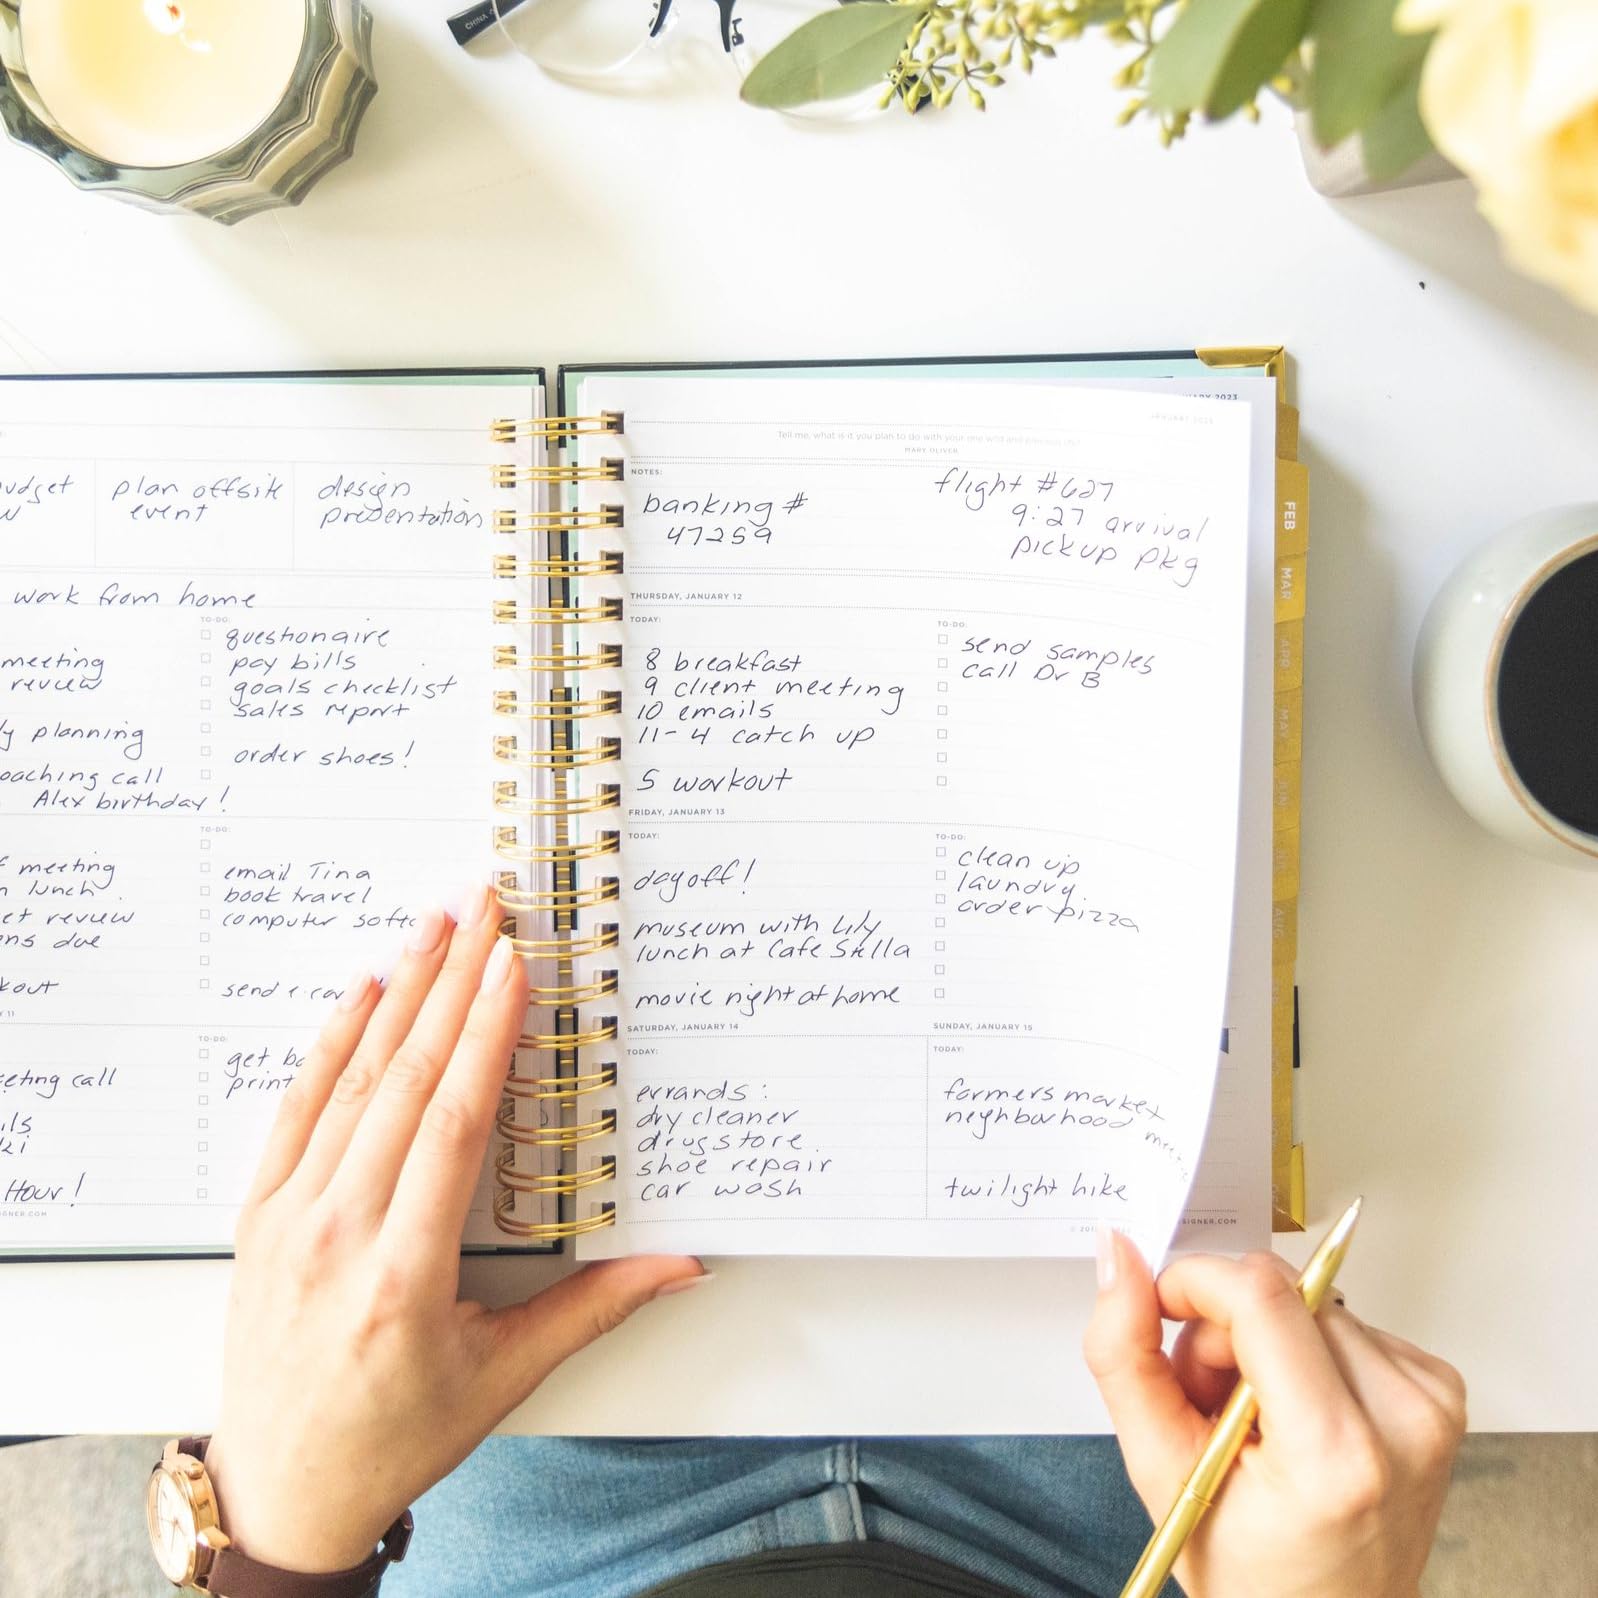 CHINA
plan offsite
event
design
presentation
work from home
TO-DO:
questionaire
pay bills
goals checklist
sales report
order shoes!
meeting
review
planning
call
Alex birthday!
TO-DO:
meeting
lunch
review
due
email Tina
book travel
computer
send e.
11
TO-DO:
get
print
call
Hour!
JANUARY 2023
Tell me, what is it you plan to do with your one wild and precious life?
MARY OLIVER
NOTES:
banking #
47259
flight #627
9:27 arrival
pickup pkg
THURSDAY, JANUARY 12
TODAY:
8 breakfast
9 client meeting
10 emails
11-4 catch up
5 workout
TO-DO:
send samples
call Dr B
FRIDAY, JANUARY 13
TODAY:
day off!
museum with Lily
lunch at Cafe Stella
movie night at home
TO-DO:
clean up
laundry
order pizza
SATURDAY, JANUARY 14
TODAY:
errands:
dry cleaner
drugstore
shoe repair
car wash
SUNDAY, JANUARY 15
TODAY:
farmers market
neighborhood
twilight hike
FEB
MAR
APR
MAY
JUN
AUG